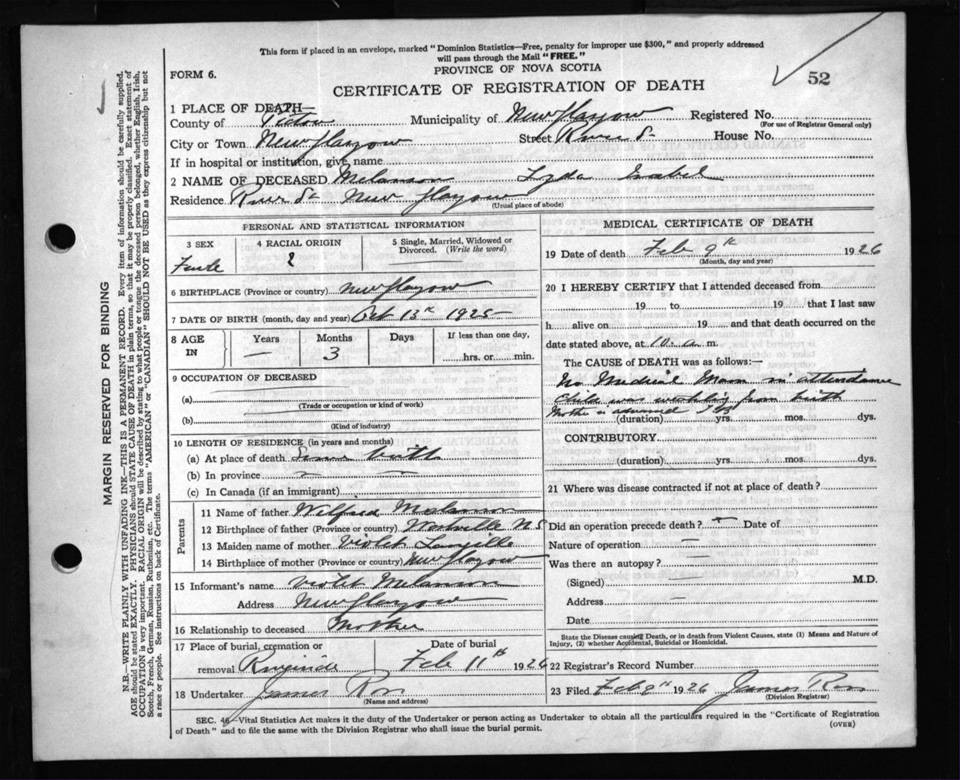 This form if placed in an envelope, marked "Dominion Statistics—Free, penalty for improper use $300," and properly addressed
will pass through the Mail "FREE."
PROVINCE OF NOVA SCOTIA
FORM 6.
CERTIFICATE OF REGISTRATION OF DEATH
52
1 PLACE OF DEATH—
County of Pictou Municipality of New Glasgow Registered No.
(For use of Registrar General only)
City or Town New Glasgow Street River St House No.
If in hospital or institution, give name
2 NAME OF DECEASED Melanson Lyda Isabel
Residence River St New Glasgow
(Usual place of abode)
PERSONAL AND STATISTICAL INFORMATION
3 SEX
4 RACIAL ORIGIN
5 Single, Married, Widowed or Divorced. (Write the word)
6 BIRTHPLACE (Province or country) New Glasgow
7 DATE OF BIRTH (month, day and year) Oct 13th 1925
8 AGE IN
Years — Months 3 Days If less than one day,
hrs. or min.
9 OCCUPATION OF DECEASED
(a)
(Trade or occupation or kind of work)
(b)
(Kind of industry)
10 LENGTH OF RESIDENCE (in years and months)
(a) At place of death Since birth
(b) In province — —
(c) In Canada (if an immigrant)
Parents
11 Name of father Wilfred Melanson
12 Birthplace of father (Province or country) N S
13 Maiden name of mother Violet Langille
14 Birthplace of mother (Province or country) New Glasgow
15 Informant's name Violet Melanson
Address New Glasgow
16 Relationship to deceased Mother
17 Place of burial, cremation or Date of burial
removal Riverside Feb 11th 1926
18 Undertaker James Ross
(Name and address)
MEDICAL CERTIFICATE OF DEATH
19 Date of death Feb 9th 1926
(Month, day and year)
20 I HEREBY CERTIFY that I attended deceased from
19 to 19 that I last saw
h alive on 19 and that death occurred on the
date stated above, at 10 a m.
The CAUSE of DEATH was as follows:—
No Medical Man in attendance
Child was weakly from birth
Mother
(duration) yrs. mos. dys.
CONTRIBUTORY
(duration) yrs. mos. dys.
21 Where was disease contracted if not at place of death?
Did an operation precede death? — Date of
Nature of operation —
Was there an autopsy? —
(Signed) M.D.
Address —
Date
State the Disease causing Death, or in death from Violent Causes, state (1) Means and Nature of
Injury, (2) whether Accidental, Suicidal or Homicidal.
22 Registrar's Record Number
23 Filed Feb 9th 1926 James Ross
(Division Registrar)
SEC. 46—Vital Statistics Act makes it the duty of the Undertaker or person acting as Undertaker to obtain all the particulars required in the "Certificate of Registration
of Death" and to file the same with the Division Registrar who shall issue the burial permit.
(OVER)
MARGIN RESERVED FOR BINDING
N.B.—WRITE PLAINLY WITH UNFADING INK—THIS IS A PERMANENT RECORD. Every item of information should be carefully supplied.
AGE should be stated EXACTLY. PHYSICIANS should STATE CAUSE OF DEATH in plain terms, so that it may be properly classified. Exact statement of
OCCUPATION is very important. RACIAL ORIGIN will be described by stating to what people or tongue the deceased person belonged, whether English, Irish,
Scotch, French, German, Russian, Ruthenian, etc. The terms "AMERICAN" or "CANADIAN" SHOULD NOT BE USED as they express citizenship but not
a race or people. See instructions on back of Certificate.